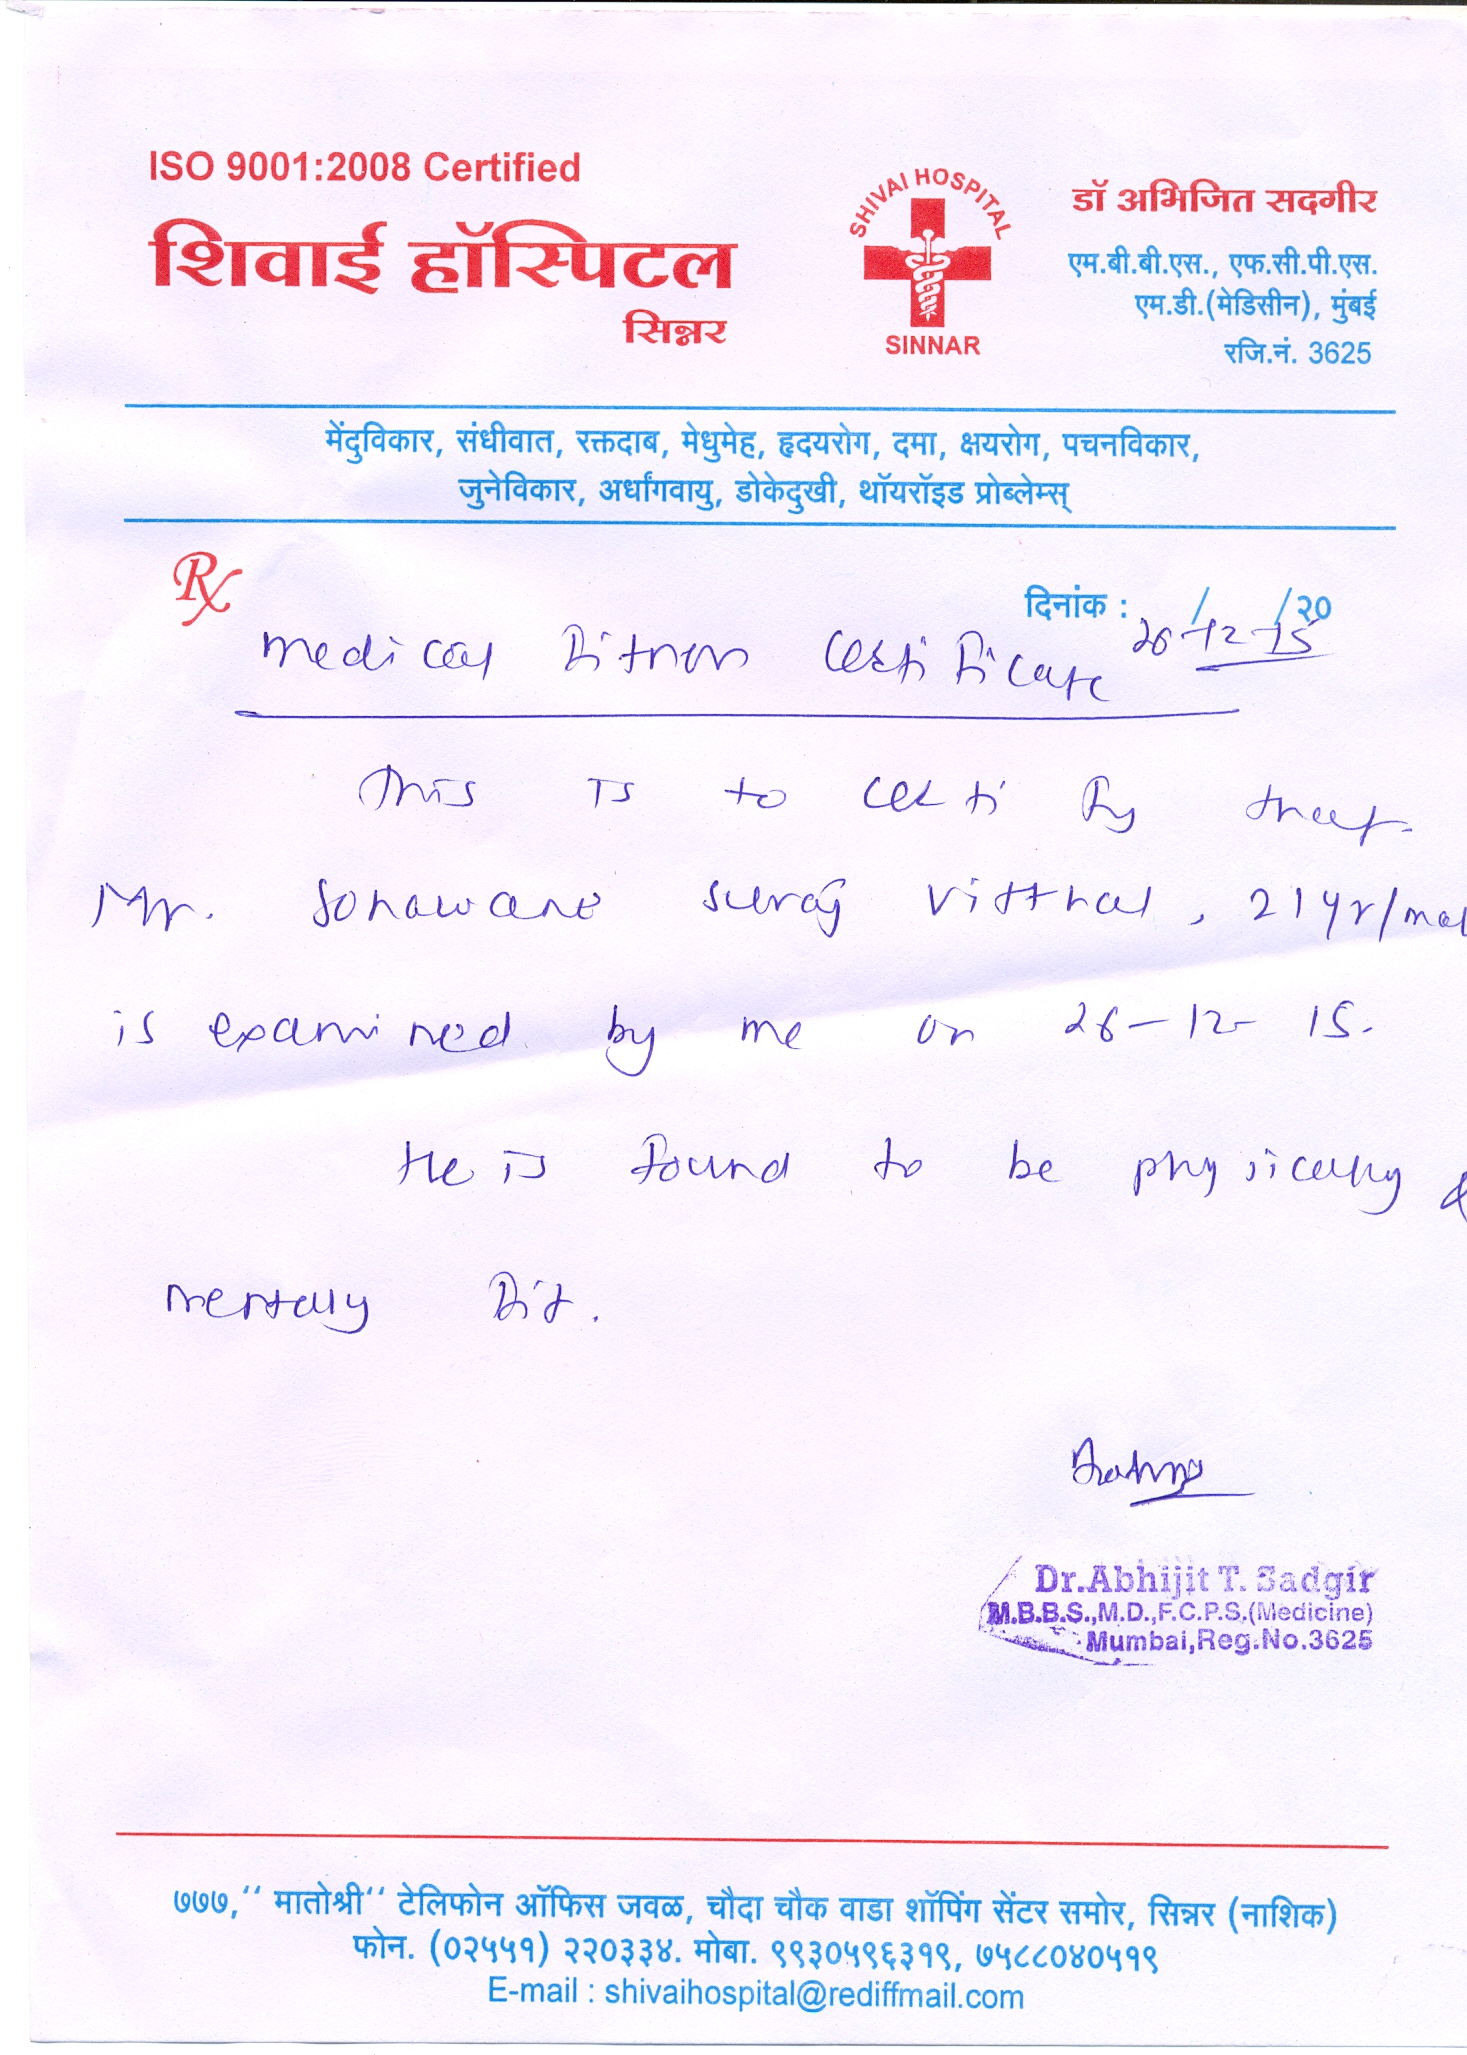 ISO 9001:2008 Certified
शिवाई हॉस्पिटल
सिन्नर
SHIVAI HOSPITAL
SINNAR
डॉ अभिजित सदगीर
एम.बी.बी.एस., एफ.सी.पी.एस.
एम.डी.(मेडिसीन), मुंबई
रजि.नं. 3625
मेंदुविकार, संधीवात, रक्तदाब, मेधुमेह, हृदयरोग, दमा, क्षयरोग, पचनविकार,
जुनेविकार, अर्धांगवायु, डोकेदुखी, थॉयरॉइड प्रोब्लेम्स्
Rx
दिनांक : / /२०
26-12-15
Medical Fitness Certificate
This is to certify that
Mr. Sonawane Suraj Vitthal, 21yr/mal
is examined by me on 26-12-15.
He is found to be physically &
mentally fit.
Dr.Abhijit T. Sadgir
M.B.B.S.,M.D.,F.C.P.S.(Medicine)
Mumbai,Reg.No.3625
७७७,‘‘ मातोश्री‘‘ टेलिफोन ऑफिस जवळ, चौदा चौक वाडा शॉपिंग सेंटर समोर, सिन्नर (नाशिक)
फोन. (०२५५१) २२०३३४. मोबा. ९९३०५९६३१९, ७५८८०४०५१९
E-mail : shivaihospital@rediffmail.com